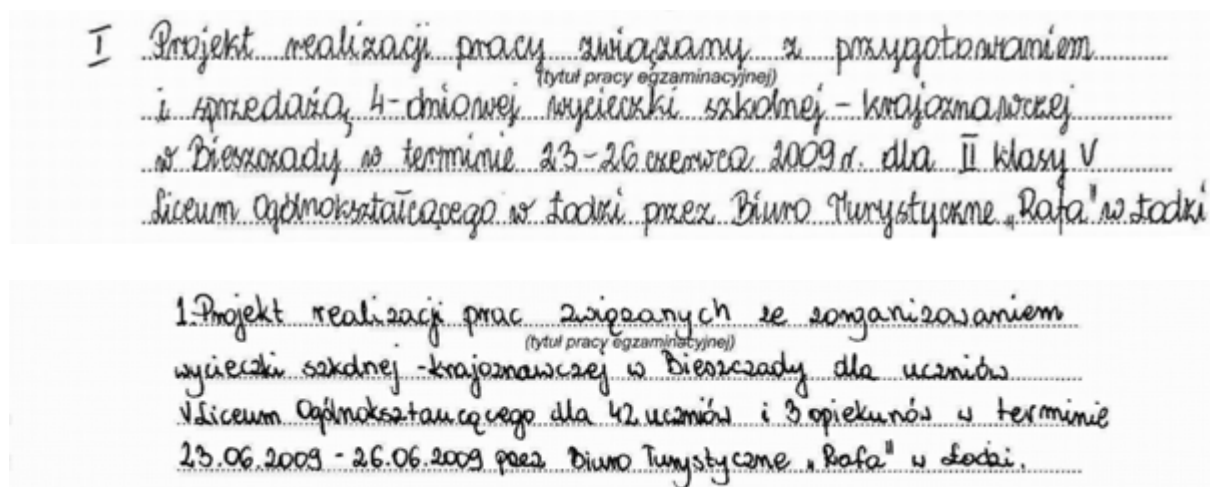 I Projekt realizacji pracy związany z przygotowaniem
(tytuł pracy egzaminacyjnej)
i sprzedażą 4-dniowej wycieczki szkolnej - krajoznawczej
w Bieszczady w terminie 23-26 czerwca 2009 r. dla II klasy V
Liceum Ogólnokształcącego w Łodzi przez Biuro Turystyczne „Rafa" w Łodzi
1. Projekt realizacji prac związanych ze zorganizowaniem
(tytuł pracy egzaminacyjnej)
wycieczki szkolnej - krajoznawczej w Bieszczady dla uczniów
V Liceum Ogólnokształcącego dla 42 uczniów i 3 opiekunów w terminie
23.06.2009 - 26.06.2009 przez Biuro Turystyczne „Rafa" w Łodzi.